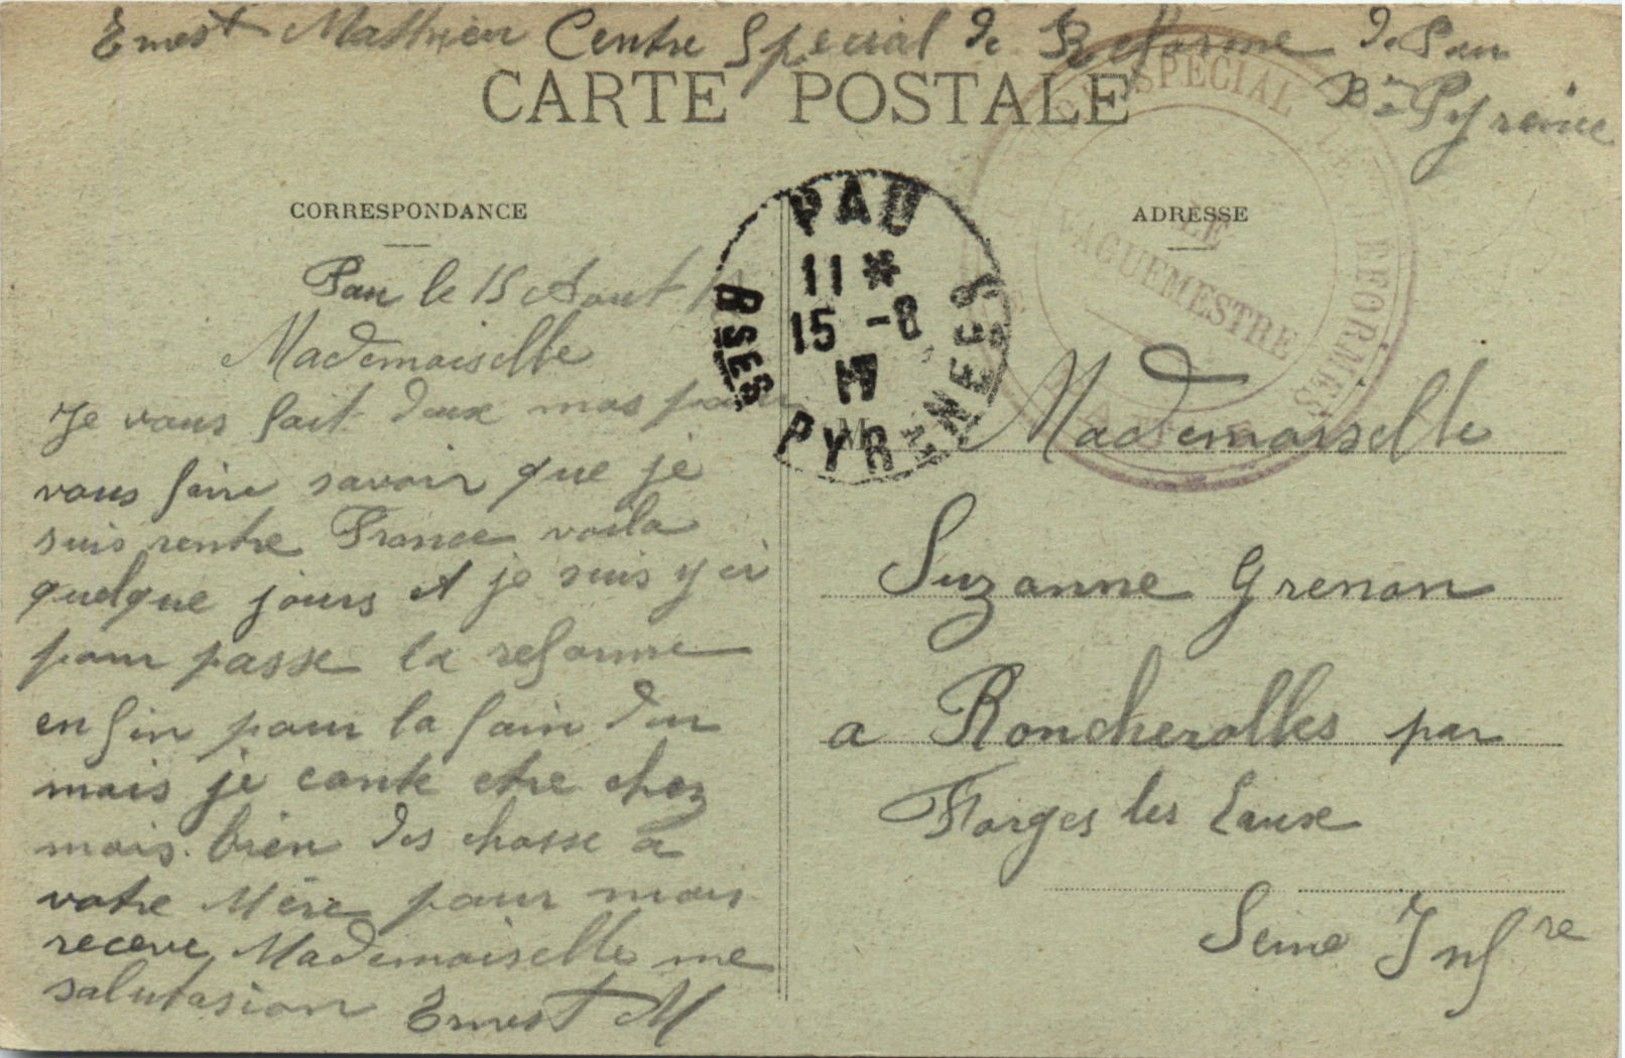 Ernest Mathieu Centre Special de Reforme de Pau
Bses Pyreinee
CARTE POSTALE
CORRESPONDANCE
Pau le 15 Aout
Mademoiselle
Je vous fait deux mos pour
vous faire savoir que je
suis rentre France voila
quelque jours et je suis y ci
pour passe la reforme
en fin pour la fain du
mais je conte etre chez
mais bien des chosse a
votre Mère pour mais
receve Mademoiselle me
salutasion Ernest M
PAU
11 *
15 -8
17
BSES PYRENEES
SPECIAL DE REFORMES
LE
VAGUEMESTRE
ADRESSE
M
Mademoiselle
Suzanne Grenon
a Roncherolles par
Forges les Eaux
Seine Infre